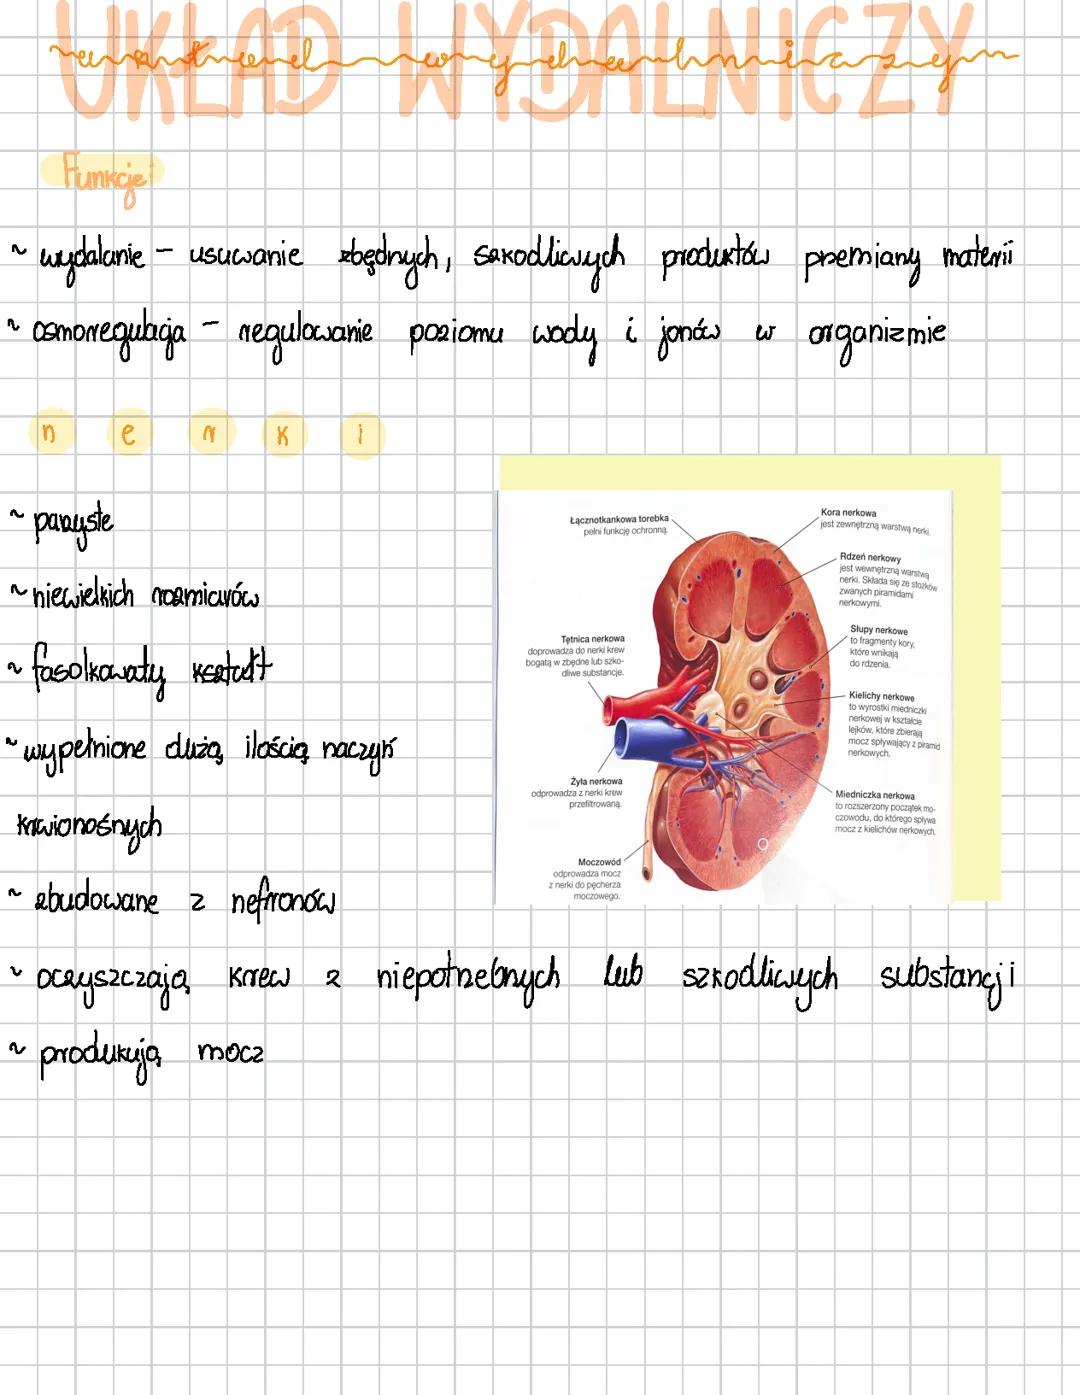 UKŁAD WYDALNICZY
układ wydalniczy
Funkcje:
~ wydalanie – usuwanie zbędnych, szkodliwych produktów przemiany materii
~ osmoregulacja – regulowanie poziomu wody i jonów w organizmie
n e r k i
~ parzyste
~ niewielkich rozmiarów
~ fasolkowaty kształt
~ wypełnione dużą ilością naczyń
krwionośnych
~ zbudowane z nefronów
~ oczyszczają krew z niepotrzebnych lub szkodliwych substancji
~ produkują mocz
Łącznotkankowa torebka
pełni funkcję ochronną.
Tętnica nerkowa
doprowadza do nerki krew
bogatą w zbędne lub szko-
dliwe substancje.
Żyła nerkowa
odprowadza z nerki krew
przefiltrowaną.
Moczowód
odprowadza mocz
z nerki do pęcherza
moczowego.
Kora nerkowa
jest zewnętrzną warstwą nerki.
Rdzeń nerkowy
jest wewnętrzną warstwą
nerki. Składa się ze stożków
zwanych piramidami
nerkowymi.
Słupy nerkowe
to fragmenty kory,
które wnikają
do rdzenia.
Kielichy nerkowe
to wyrostki miedniczki
nerkowej w kształcie
lejków, które zbierają
mocz spływający z piramid
nerkowych.
Miedniczka nerkowa
to rozszerzony początek mo-
czowodu, do którego spływa
mocz z kielichów nerkowych.